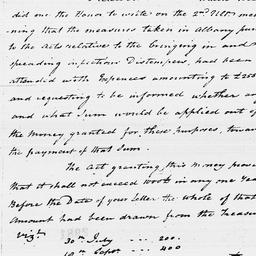 did me the Honor to write on the 2nd Ulto men
ning that the measures taken in Albany pur
to the Acts relative to the bringing in and
spreading infectious Distempers, had been
attended with Expences amounting to £200
and requesting to be informed whether an
and what Sum would be applied out of
the money granted for these purposes, towa
the payment of that Sum.
The Act granting this money provi
that it shall not exceed 600£ in any one Yea
Before the Date of your Letter the whole of that
Amount had been drawn from the Treasur
vizt
30th July --- 200.
10th Septr --- 400